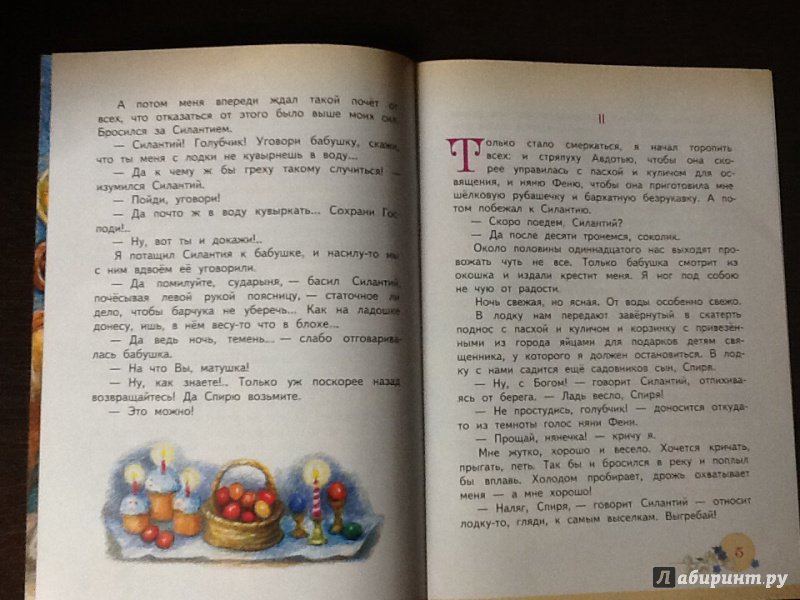 А потом меня впереди ждал такой почёт от
всех, что отказаться от этого было выше моих сил.
Бросился за Силантием.
— Силантий! Голубчик! Уговори бабушку, скажи,
что ты меня с лодки не кувырнешь в воду...
— Да к чему ж бы греху такому случиться! —
изумился Силантий.
— Пойди, уговори!
— Да почто ж в воду кувыркать... Сохрани Гос-
поди!..
— Ну, вот ты и докажи!..
Я потащил Силантия к бабушке, и насилу-то мы
с ним вдвоём её уговорили.
— Да помилуйте, сударыня, — басил Силантий,
почёсывая левой рукой поясницу, — статочное ли
дело, чтобы барчука не уберечь... Как на ладошке
донесу, ишь, в нём весу-то что в блохе...
— Да ведь ночь, темень... — слабо отговарива-
лась бабушка.
— На что Вы, матушка!
— Ну, как знаете!.. Только уж поскорее назад
возвращайтесь! Да Спирю возьмите.
— Это можно!
II
Только стало смеркаться, я начал торопить
всех: и стряпуху Авдотью, чтобы она ско-
рее управилась с пасхой и куличом для ос-
вящения, и няню Феню, чтобы она приготовила мне
шёлковую рубашечку и бархатную безрукавку. А по-
том побежал к Силантию.
— Скоро поедем, Силантий?
— Да после десяти тронемся, соколик.
Около половины одиннадцатого нас выходят про-
вожать чуть не все. Только бабушка смотрит из
окошка и издали крестит меня. Я ног под собою
не чую от радости.
Ночь свежая, но ясная. От воды особенно свежо.
В лодку нам передают завёрнутый в скатерть
поднос с пасхой и куличом и корзинку с привезён-
ными из города яйцами для подарков детям свя-
щенника, у которого я должен остановиться. В лод-
ку с нами садится ещё садовников сын, Спиря.
— Ну, с Богом! — говорит Силантий, отпихива-
ясь от берега. — Ладь весло, Спиря!
— Не простудись, голубчик! — доносится откуда-
то из темноты голос няни Фени.
— Прощай, нянечка! — кричу я.
Мне жутко, хорошо и весело. Хочется кричать,
прыгать, петь. Так бы и бросился в реку и поплыл
бы вплавь. Холодом пробирает, дрожь охватывает
меня — а мне хорошо!
— Наляг, Спиря, — говорит Силантий — относит
лодку-то, гляди, к самым выселкам. Выгребай!
5
Лабиринт.ру